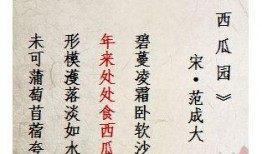 西瓜园》
宋·范成大
碧蔓凌霜卧软沙
年来处处食西瓜
形模濩落淡如水
未可蒲萄苜蓿夸